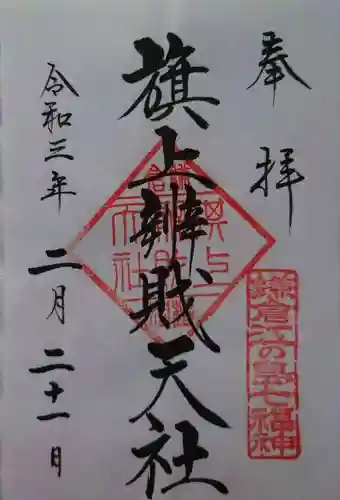 奉拝
旗上辨財天社
令和三年 二月二十一日
鎌倉江の島七福神